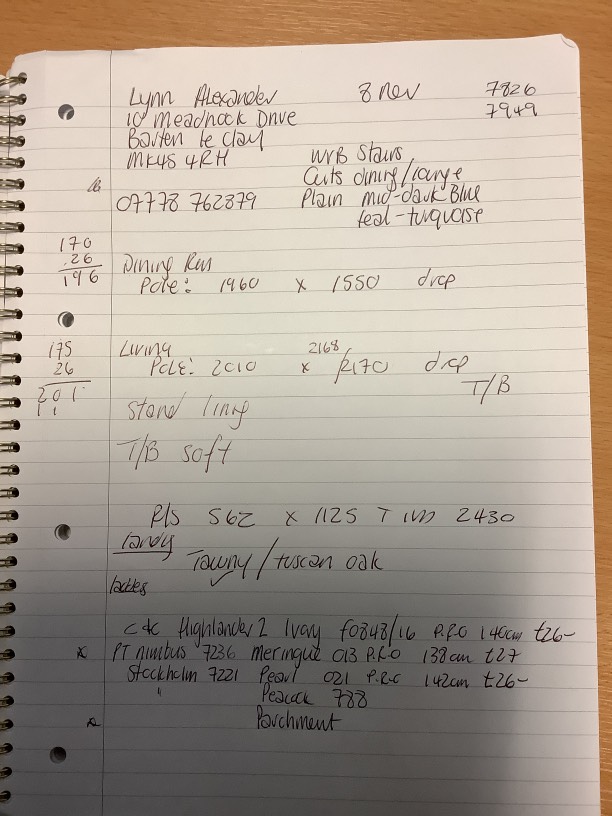 Lynn Alexander 8 Nov 7826
10 Meadhook Drive 7949
Barton le Clay
MK45 4RH WVB Stairs
Cuts dining/lounge
07778 762879 Plain mid-dark Blue
teal-turquoise
170
26
196
Dining Rm
Pole: 1960 x 1550 drop
175
26
201
1 1
Living 2168
Pole: 2010 x 2170 drop
T/B
Stand lining
T/B soft
P/S 562 x 1125 T 2430
Tawny/tuscan oak
c&c Highlander 2 Ivory f0848/16 P.R.O 140cm £26-
x PT nimbus 7236 Meringue 013 P.R.O 138cm £27
Stockholm 7221 Pearl 021 P.R.O 142cm £26-
" Peacock 788
x Parchment